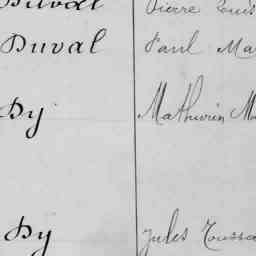 Duval Pierre Louis
Duval Paul Ma
Dy Mathurin M
Dy Jules Toussa